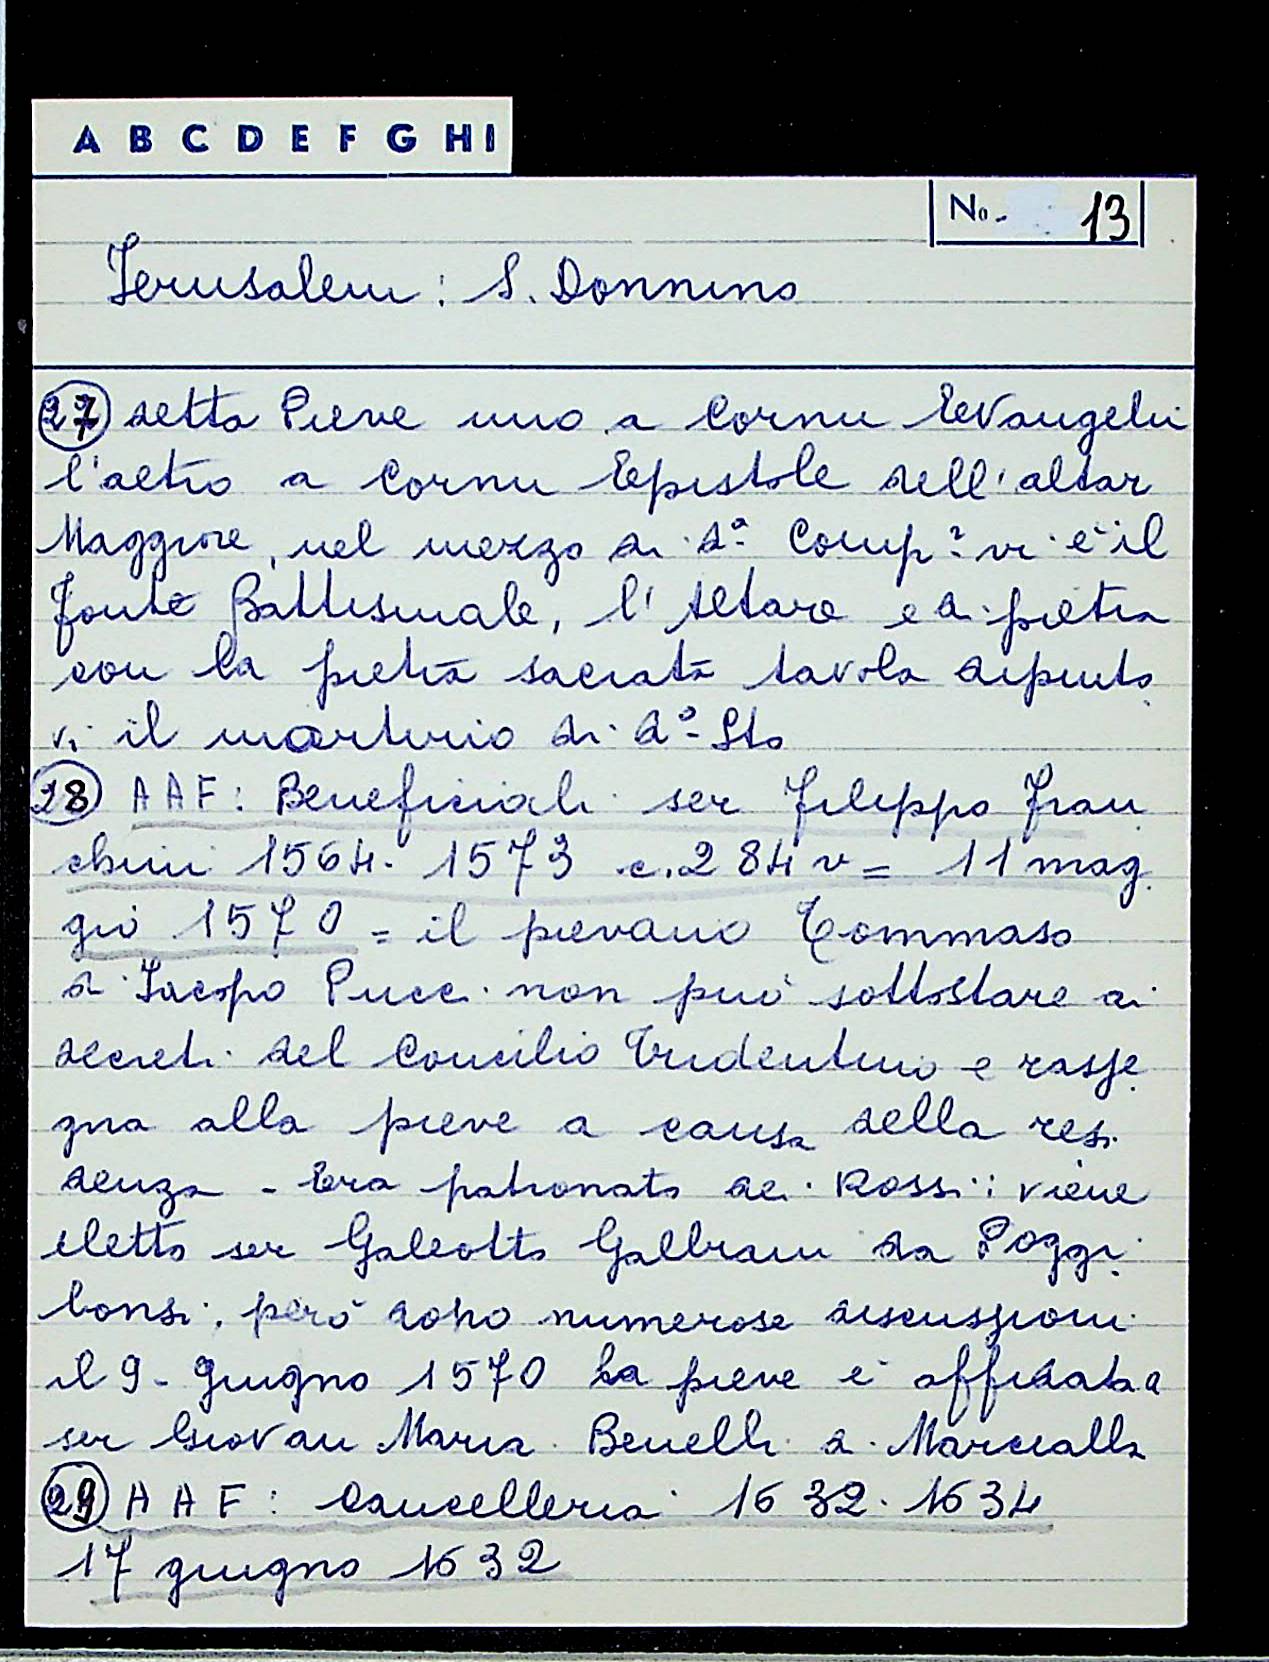 A B C D E F G H I
No. 13
Jerusalem : S. Donnino
27 detta Pieve uno a Cornu Evangelii
l'altro a Cornu Epistole dell'altar
Maggiore, nel mezzo di dª Compª vi è il
fonte Battesimale, l'altare e di pietra
con la pietra sacrata tavola dipinto
vi il martirio di d° Sto
28 AAF: Beneficiali ser Filippo Fran
chini 1564-1573 c.284v = 11 mag
gio 1570 = il pievano Tommaso
di Iacopo Pucci non può sottostare ai
decreti del Concilio Tridentino e rasse
gna alla pieve a causa della resi
denza - Era patronato dei Rossi: viene
eletto ser Galeotto Galbrani da Poggi
bonsi, però dopo numerose discussioni
il 9 - giugno 1570 la pieve è affidata a
ser Giovan Maria Benelli di Marcialla
29 AAF: Cancelleria 1632-1634
17 giugno 1632